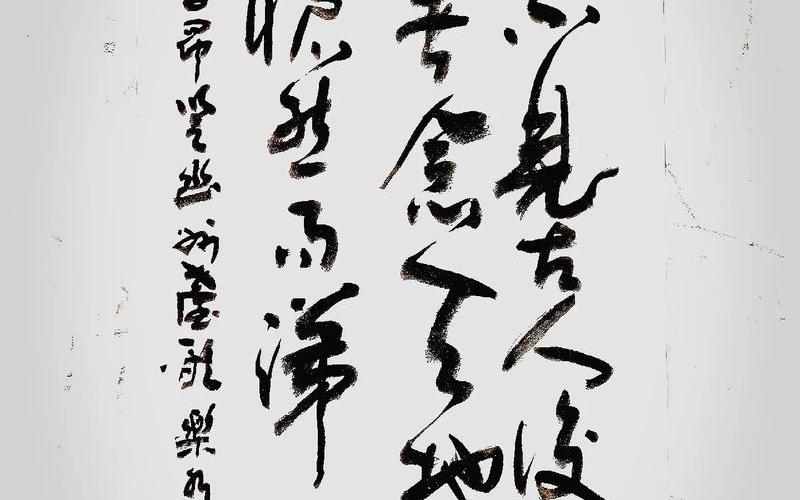 不見古人後
者念天地
愴然而涕
昂登幽州臺歌樂